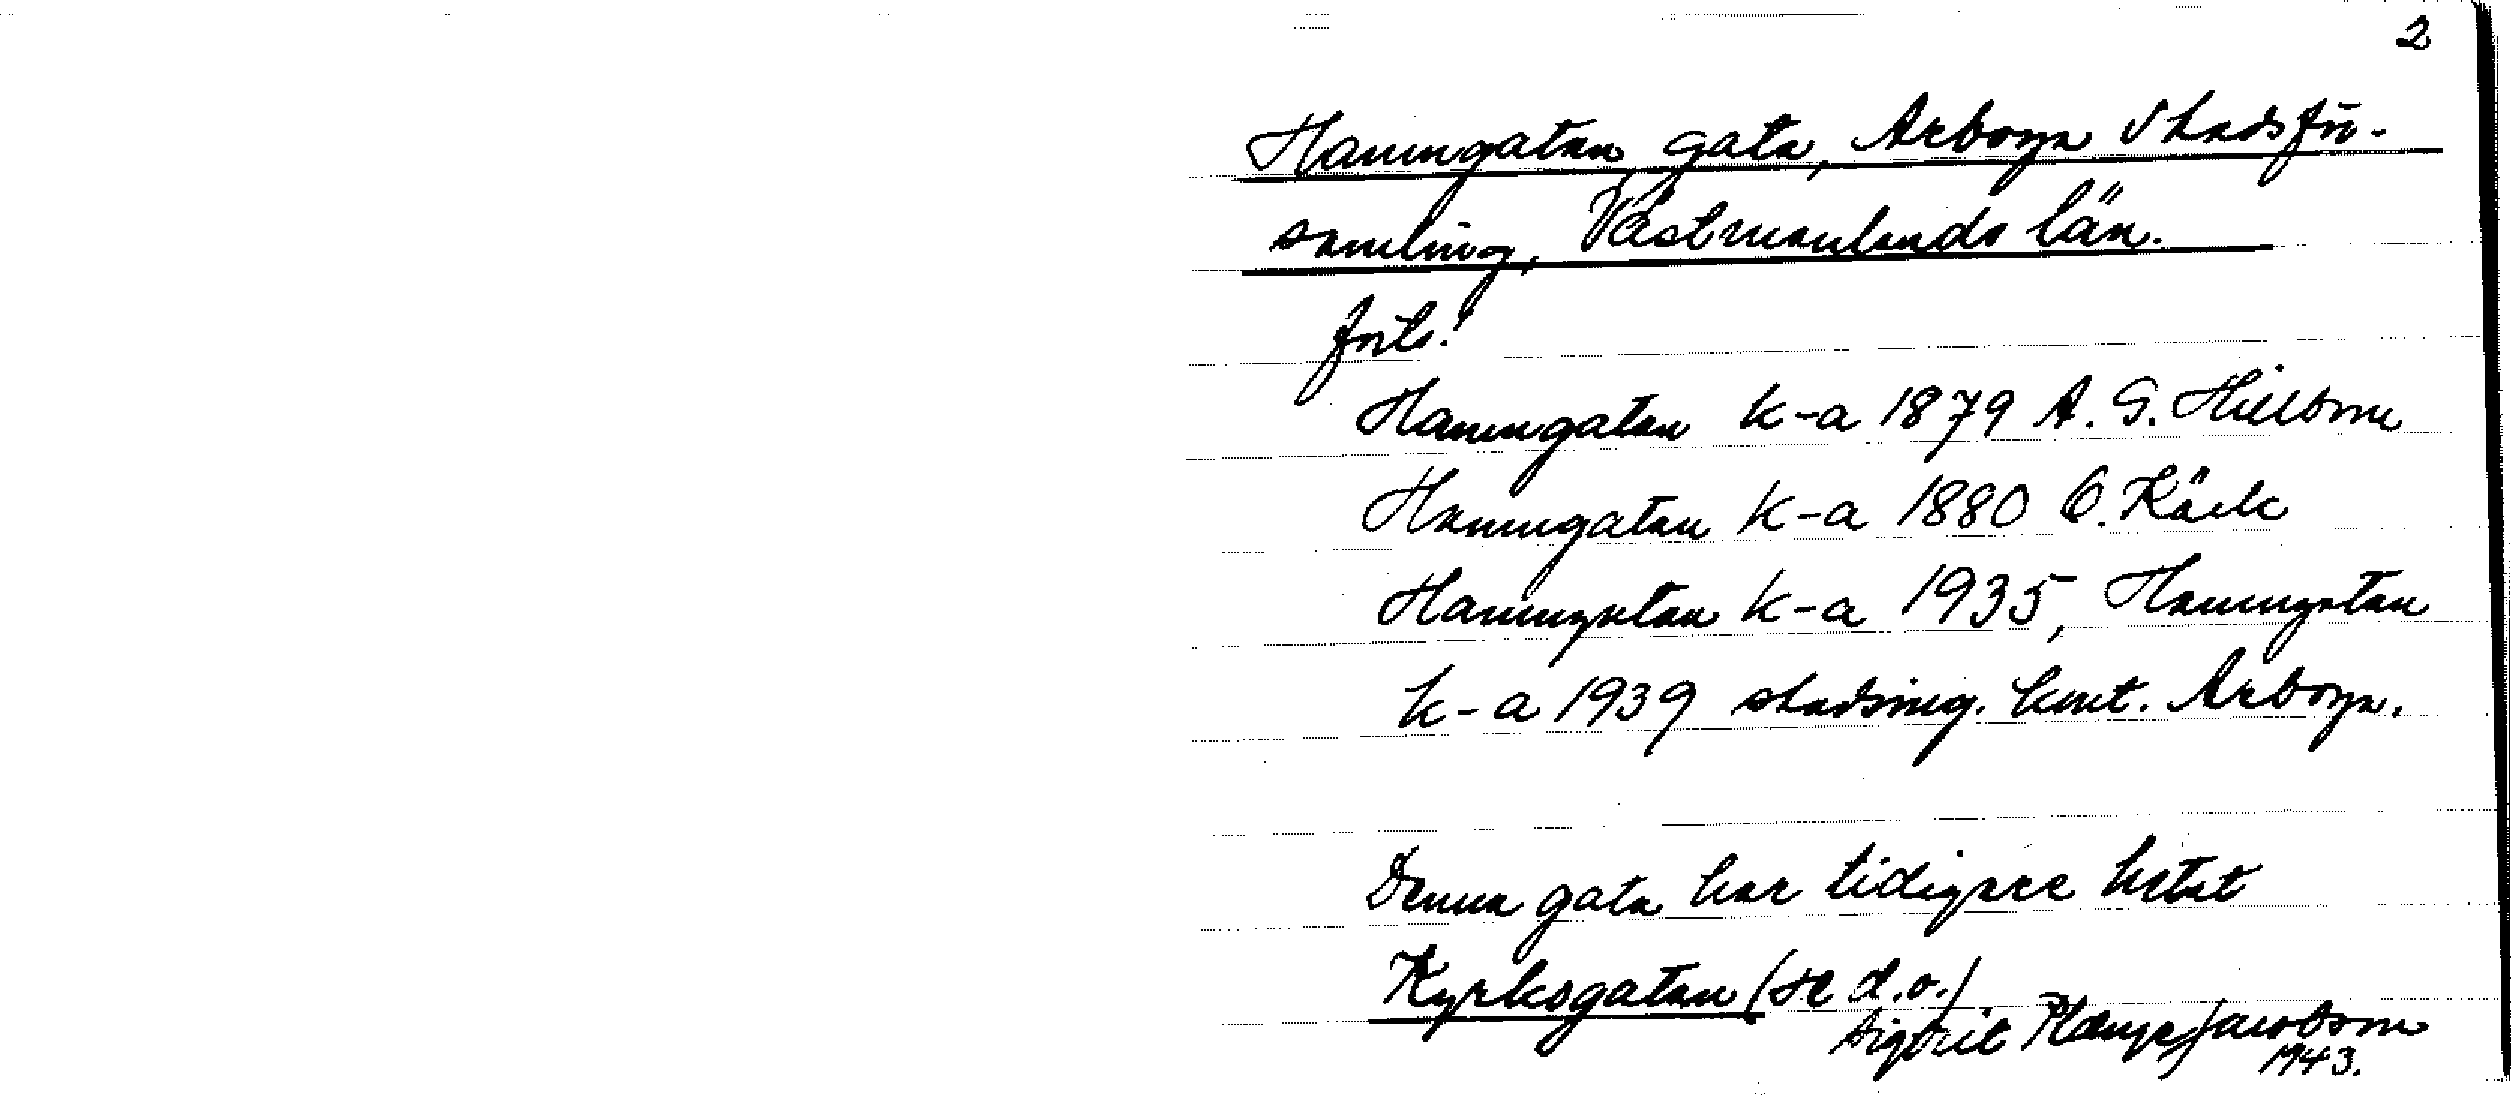 2
Hamngatan, gata, Arboga stadsför-
samling, Västmanlands län.
forts.
Hamngatan k-a 1879 A. G. Hillbom
Hamngatan k-a 1880 C. Käck
Hamngatan k-a 1935, Hamngatan
k-a 1939 stadsing. kont. Arboga.
Denna gata har tidigare hetat
Kyrkogatan (se d.o.)
Sigbrit Plænge Jacobson
1943.